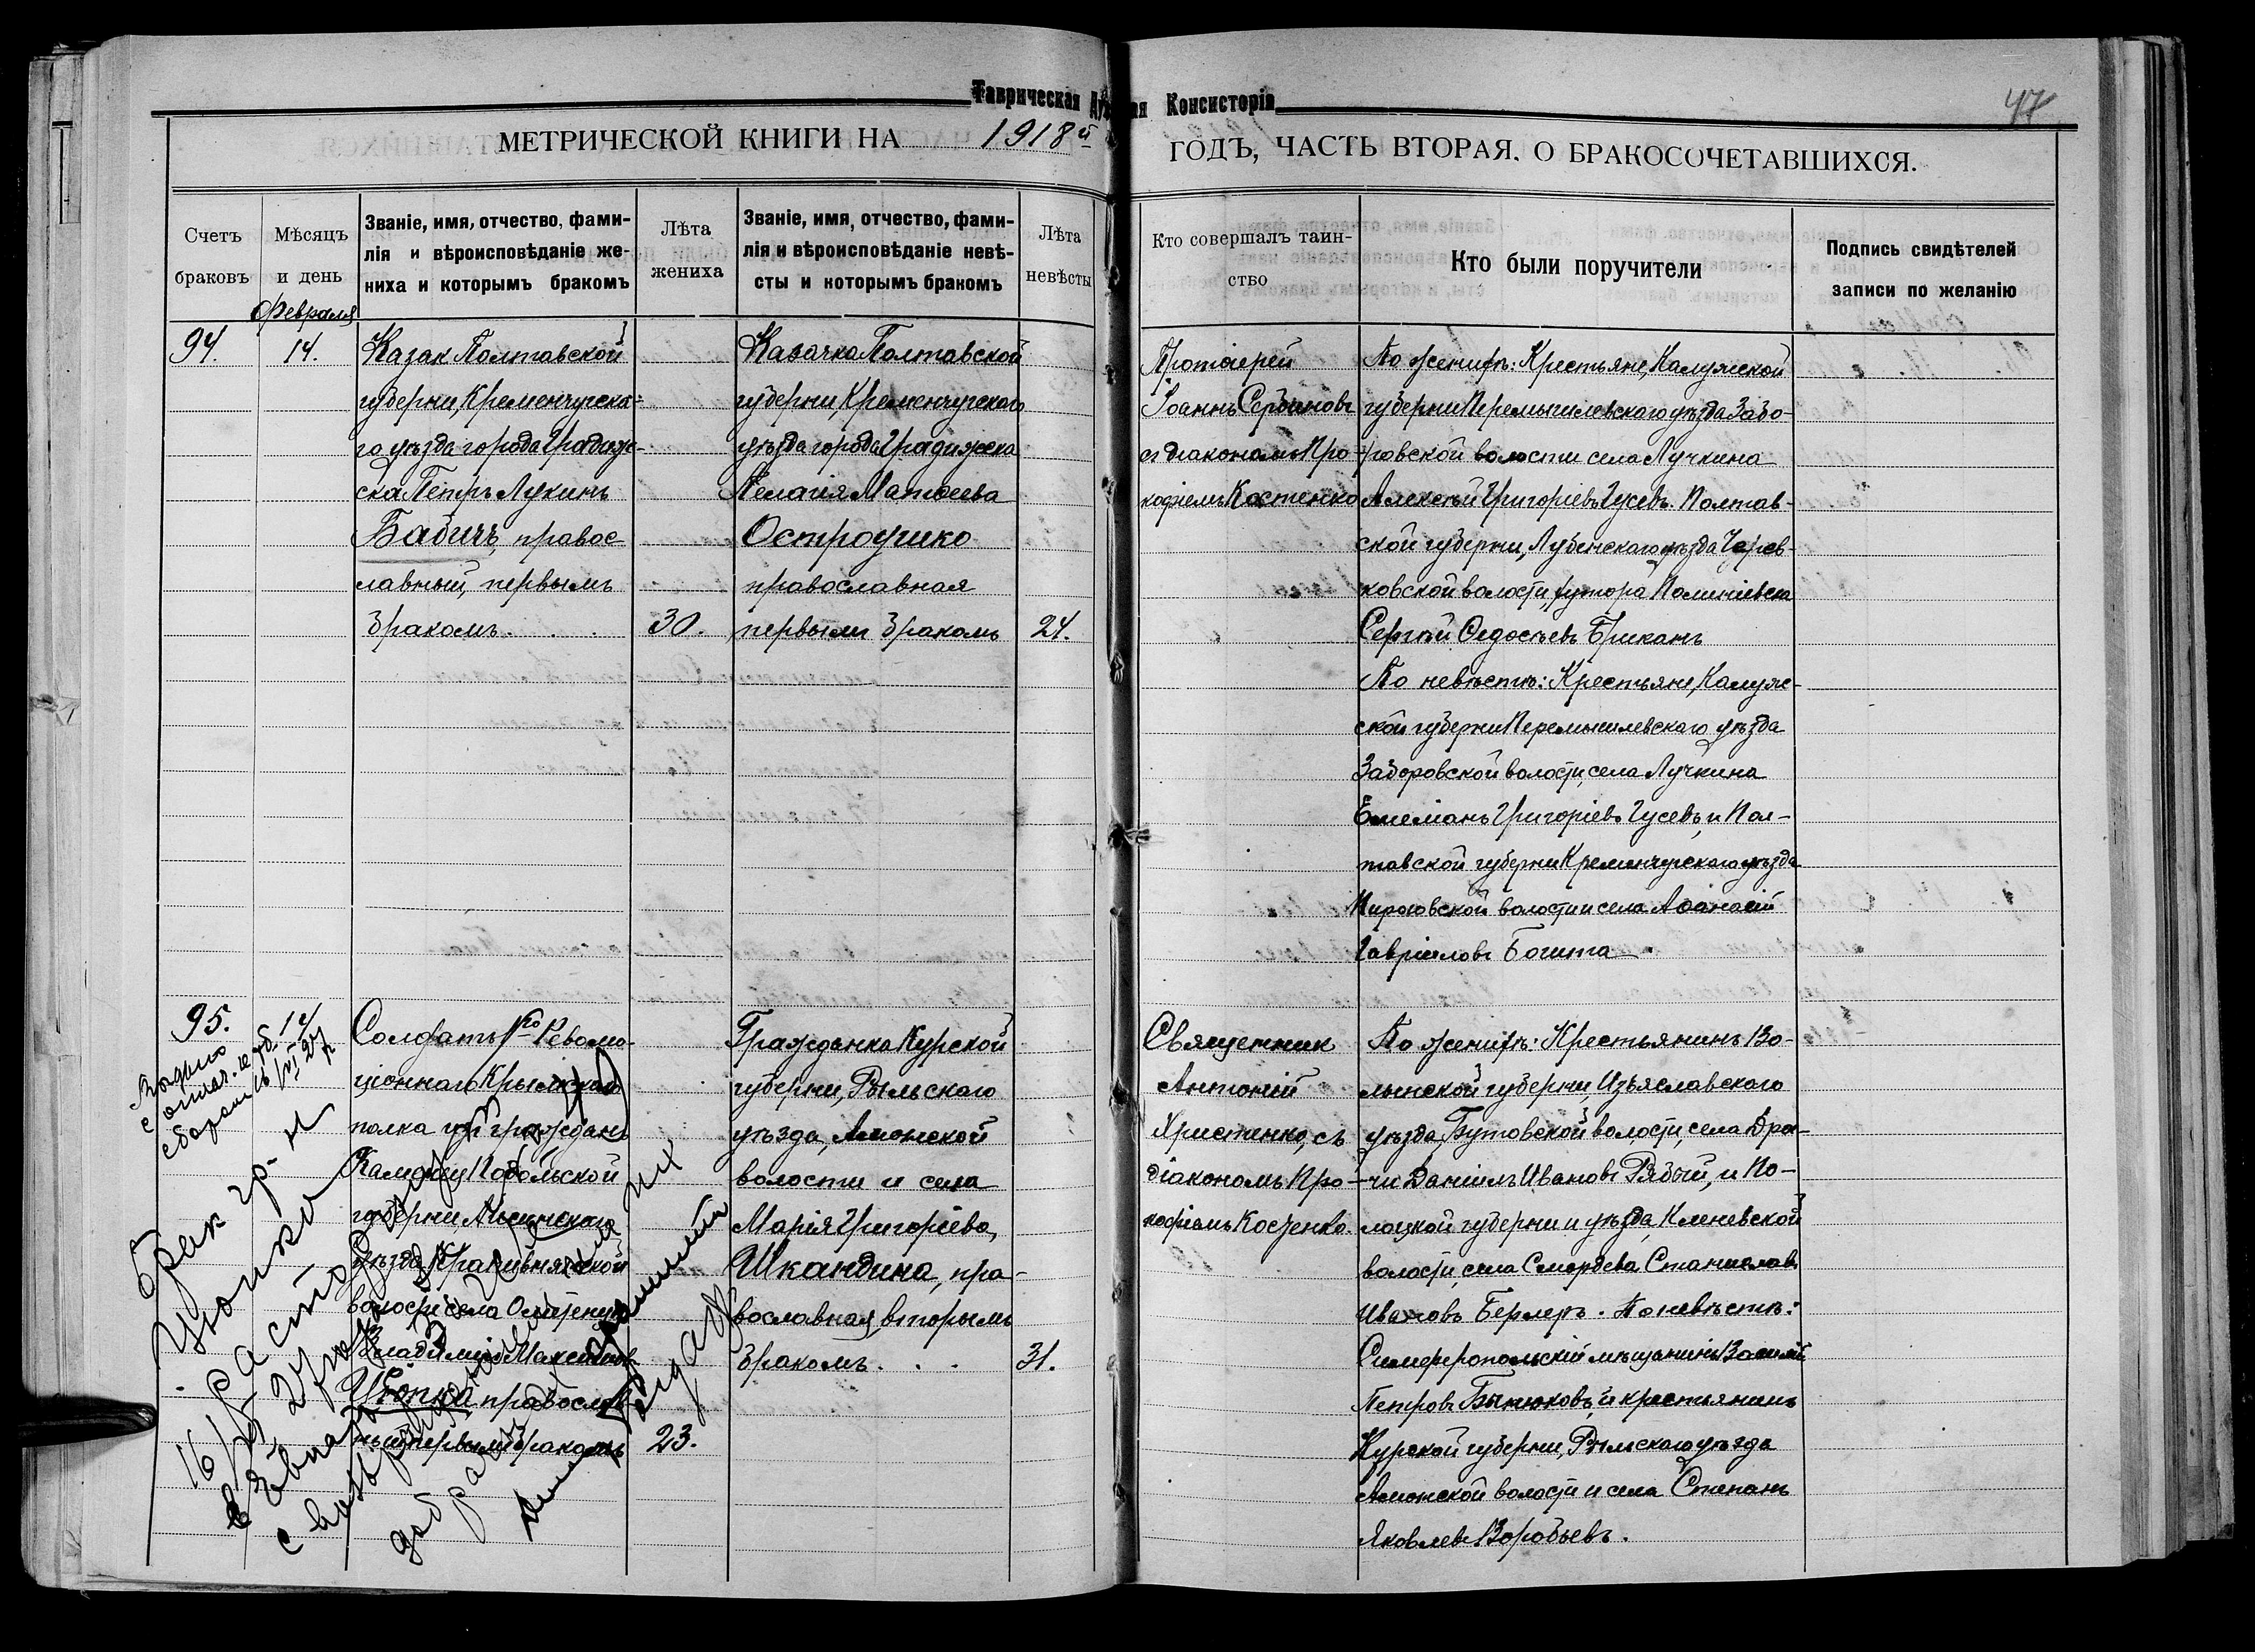 Таврическая Духовная Консисторія
47
МЕТРИЧЕСКОЙ КНИГИ НА 1918й
ГОДЪ, ЧАСТЬ ВТОРАЯ, О БРАКОСОЧЕТАВШИХСЯ.
Счетъ
браковъ
Мѣсяцъ
и день
Февраля
Званіе, имя, отчество, фами-
лія и вѣроисповѣданіе же-
ниха и которымъ бракомъ
Лѣта
жениха
Званіе, имя, отчество, фами-
лія и вѣроисповѣданіе невѣ-
сты и которымъ бракомъ
Лѣта
невѣсты
Кто совершалъ таин-
ство
Кто были поручители
Подпись свидѣтелей
записи по желанію
94.
14.
Казак Полтавской
губерніи, Кременчугска-
го уѣзда города Градиж-
ска Петръ Лукинъ
Бабичъ, правос-
лавный, первымъ
бракомъ. . . .
30.
Казачка Полтавской
губерніи, Кременчугскаго
уѣзда города Градижска
Пелагія Матѳеева
Остроушко
православная
первымъ бракомъ
24.
Протоіерей
Іоаннъ Сербиновъ
съ діакономъ Про-
кофіемъ Костенко
По женихѣ: Крестьяне, Калужской
губерніи Перемышлевскаго уѣзда Забо-
ровской волости села Лучкина
Алексѣй Григорьевъ Гусевъ. Полтав-
ской губерніи, Лубенскаго уѣзда Черев-
ковской волости, хутора
Сергѣй Ѳедосѣевъ Бриканъ
По невѣстѣ: Крестьяне, Калуж-
ской губерніи Перемышлевскаго уѣзда
Заборовской волости, села Лучкина
Емеліанъ Григоріевъ Гусевъ, и Пол-
тавской губерніи Кременчугскаго уѣзда
Пироговской волости и села Аѳанасій
Гавріиловъ Богита
95.
14
Солдатъ 1го Револю-
ціоннаго Крымскаго
полка изъ гражданъ
Каменец Подольской
губерніи
уѣзда
волости села
Владиміръ Максимов
Цюпка православ-
ный первымъ бракомъ
23.
Гражданка Курской
губерніи, Рыльскаго
уѣзда, Амонской
волости и села
Марія Григоріева,
Шкандина, пра-
вославная, вторымъ
бракомъ. . . .
31.
Священникъ
Антоній
Христенко, съ
діакономъ Про-
кофіемъ Костенко.
По женихѣ: Крестьянинъ Во-
лынской губерніи, Изъяславскаго
уѣзда, Бутовской волости, села Дра-
чи Даніилъ Ивановъ Рябый, и По-
лоцкой губерніи и уѣзда, Кленевской
волости, села Смердева Станиславъ
Ивановъ Берлеръ. По невѣстѣ:
Симферопольскій мѣщанинъ Василій
Петровъ Бытюковъ, и крестьянинъ
Курской губерніи, Рыльскаго уѣзда
Амонской волости и села Степанъ
Яковлевъ Воробьевъ.
Брак гр-н
Цюпко
расторгнут
16/
с
добрачных